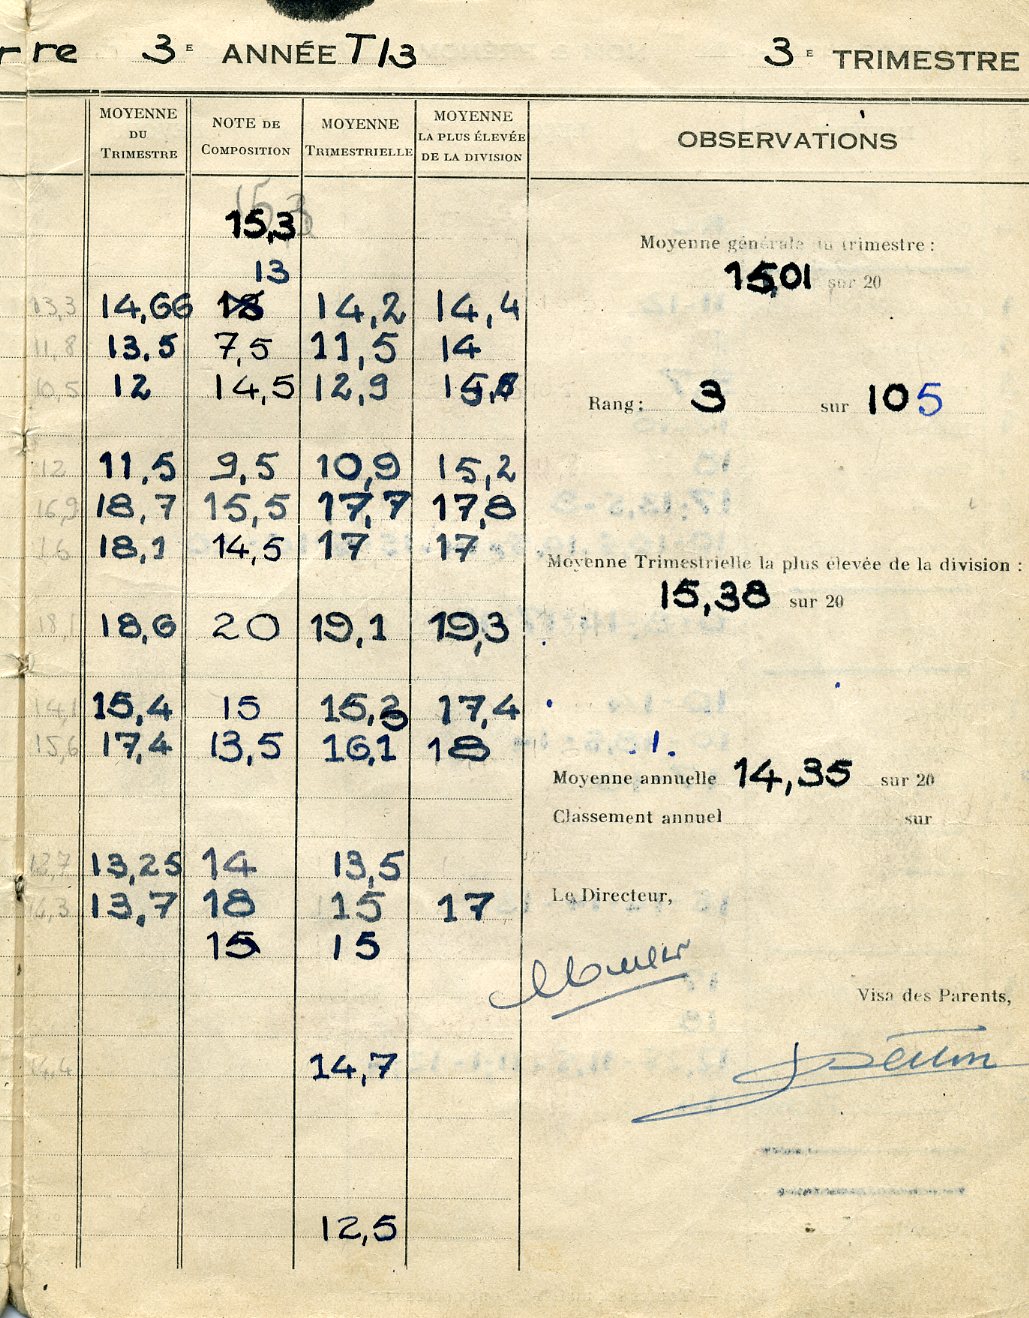 rre 3E ANNÉE T/3 3E TRIMESTRE
MOYENNE DU TRIMESTRE
NOTE DE COMPOSITION
MOYENNE TRIMESTRIELLE
MOYENNE LA PLUS ÉLEVÉE DE LA DIVISION
OBSERVATIONS
15,3
15,3
13
13,3 14,66 14,2 14,4
11,8 13,5 7,5 11,5 14
10,5 12 14,5 12,9
12 11,5 9,5 10,9 15,2
16,9 18,7 15,5 17,7 17,8
16 18,1 14,5 17 17
18,1 18,6 20 19,1 19,3
14,1 15,4 15 15,3 17,4
15,6 17,4 13,5 16,1 18
13,25 14 13,5
14,3 13,7 18 15 17
15 15
14,4 14,7
12,5
Moyenne générale du trimestre :
15,01 sur 20
Rang : 3 sur 105
Moyenne Trimestrielle la plus élevée de la division :
15,38 sur 20
Moyenne annuelle 14,35 sur 20
Classement annuel sur
Le Directeur,
Visa des Parents,